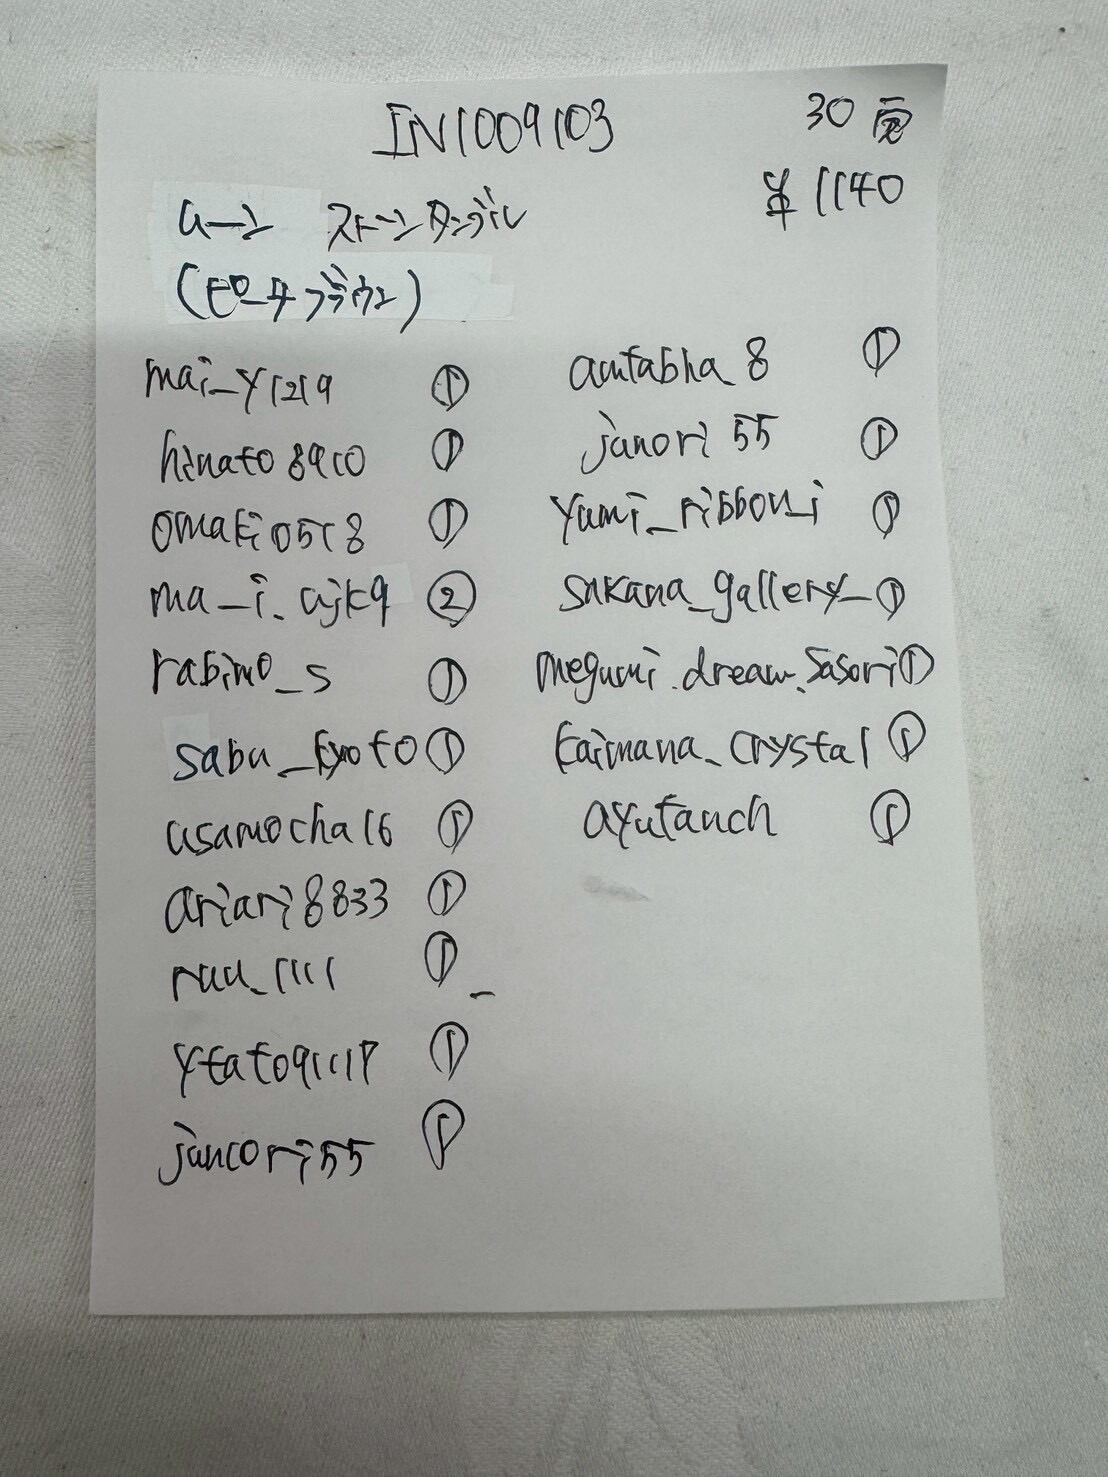 IN1009103
30
¥1140
ムーン ストーンタンブル
(ピーチブラウン)
mai_y1219 ①
hinato8910 ①
omaki0518 ①
ma_i.ajk9 ②
rabimo_s ①
sabu_kyoto ①
usamocha16 ①
ariari8833 ①
ruu_1111 ①
①
jancori55 ①
amtabha_8 ①
janori55 ①
yumi_ribbon_i ①
sakana_gallery_ ①
megumi.dream.sasori ①
kaimana_crystal ①
ayutanch ①